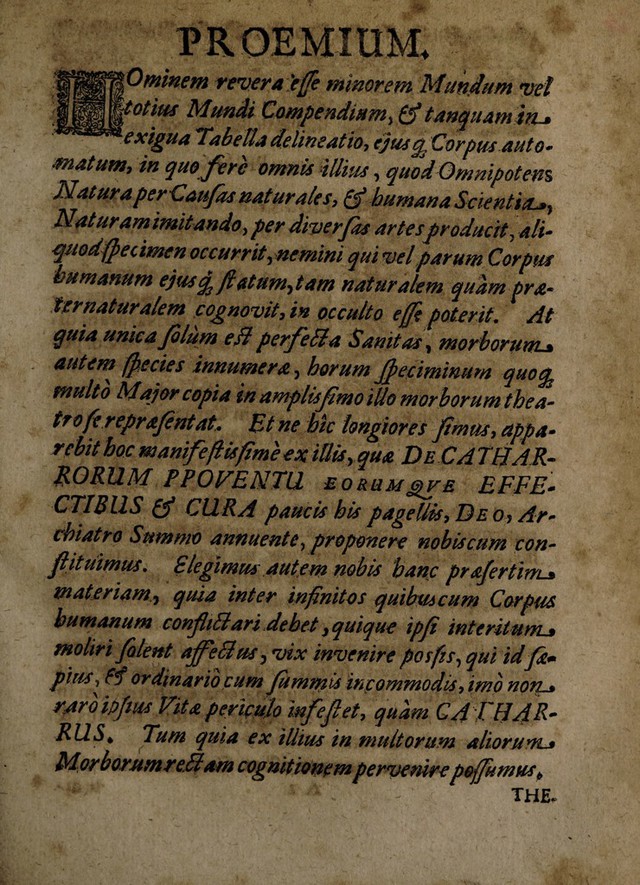 PROEMIUM.
HOminem revera esse minorem Mundum vel
totius Mundi Compendium, & tanquam in
exigua Tabella delineatio, ejusq́; Corpus auto-
matum, in quo ferè omnis illius, quod Omnipotens
Natura per Causas naturales, & humana Scientia,
Naturam imitando, per diversas artes producit, ali-
quod specimen occurrit, nemini qui vel parum Corpus
humanum ejusq́; statum, tam naturalem quàm præ-
ternaturalem cognovit, in occulto esse poterit. At
quia unica solùm est perfecta Sanitas, morborum
autem species innumeræ, horum speciminum quoq́;
multò Major copia in amplissimo illo morborum thea-
tro se repræsentat. Et ne hîc longiores simus, appa-
rebit hoc manifestissimè ex illis, quæ DE CATHAR-
RORUM PPOVENTU EORUMQVE EFFE-
CTIBUS & CURA paucis his pagellis, DEO, Ar-
chiatro Summo annuente, proponere nobiscum con-
stituimus. Elegimus autem nobis hanc præsertim
materiam, quia inter infinitos quibuscum Corpus
humanum conflictari debet, quique ipsi interitum
moliri solent affectus, vix invenire possis, qui id sæ-
pius, & ordinariò cum summis incommodis, imò non
rarò ipsius Vitæ periculo infestet, quàm CATHAR-
RUS. Tum quia ex illius in multorum aliorum
Morborum rectam cognitionem pervenire possumus.
THE-